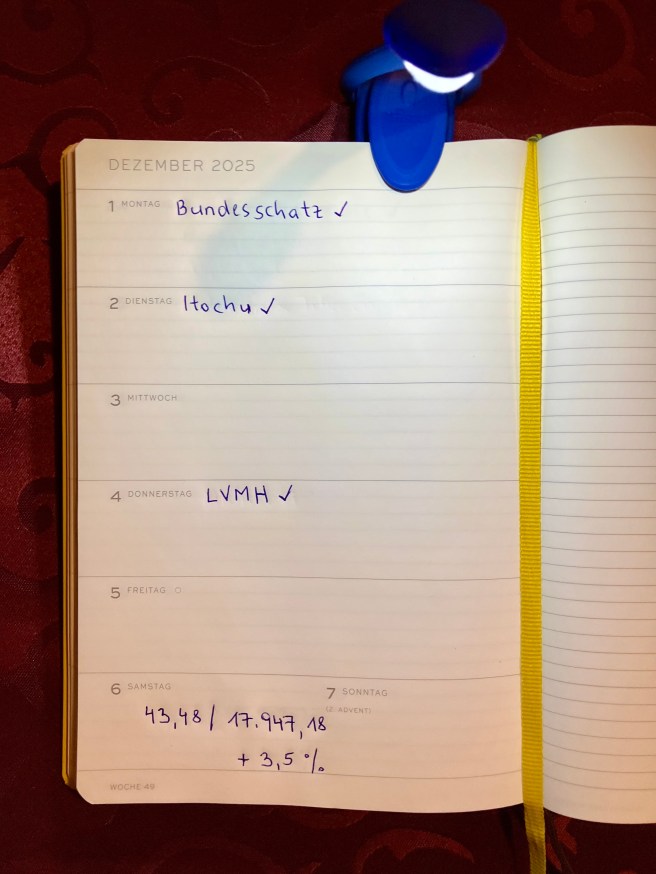 DEZEMBER 2025
1 MONTAG Bundesschatz ✓
2 DIENSTAG Itochu ✓
3 MITTWOCH
4 DONNERSTAG LVMH ✓
5 FREITAG
6 SAMSTAG
7 SONNTAG
(2. ADVENT)
43,48 / 17.947,18
+ 3,5 %
WOCHE 49